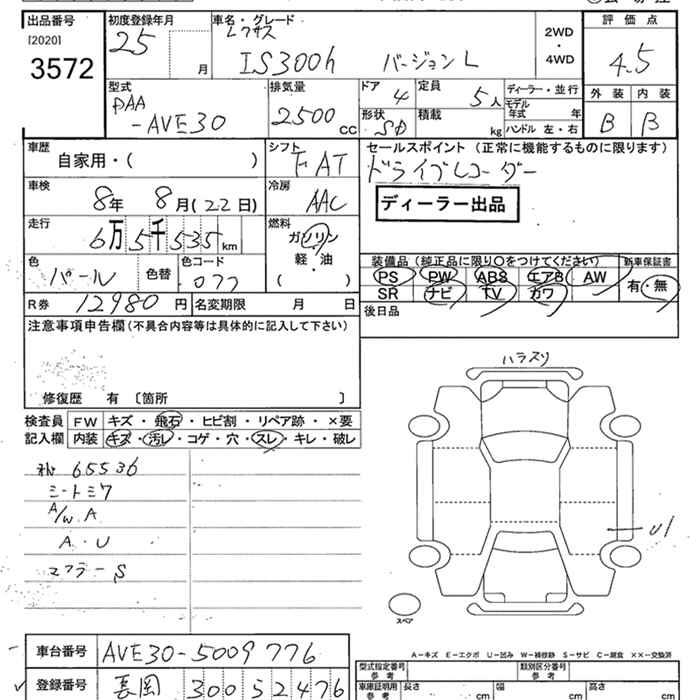 出品番号 初度登録年月 車名・グレード 評価点
[2020] 25 レクサス 2WD
3572 月 IS300h バージョンL ・ 4WD 4.5
型式 排気量 ドア 定員 ディーラー・並行 外装 内装
DAA 2500 4 5人 モデル年式 年 B B
-AVE30 CC 形状 SD 積載 kg ハンドル 左・右
車歴 シフト セールスポイント (正常に機能するものに限ります)
自家用・( ) FAT ドライブレコーダー
車検 冷房
8年 8月(22日) AAC ディーラー出品
走行 燃料
6万5千535km ガソリン
軽・油
( )
色 色替 色コード 装備品(純正品に限り○をつけてください) 新車保証書
パール 077 PS PW ABS エアB AW 有・無
SR ナビ TV カワ
R券 12980円 名変期限 月 日 後日品
注意事項申告欄(不具合内容等は具体的に記入して下さい)
修復歴 有 〔箇所 〕
ハラスリ
検査員 FW キズ・飛石・ヒビ割・リペア跡・×要
記入欄 内装 キズ・汚レ・コゲ・穴・スレ・キレ・破レ
65536
A/W A
A・U
マフラーS
U1
スペア
A-キズ E-エクボ U-凹み W-補修跡 S-サビ C-腐食 ××-交換済
車台番号 AVE30-5009776
型式指定番号 参考 類別区分番号 参考
登録番号 長岡 300 ス2476
車庫証明用 参考 長さ cm 幅 cm 高さ cm